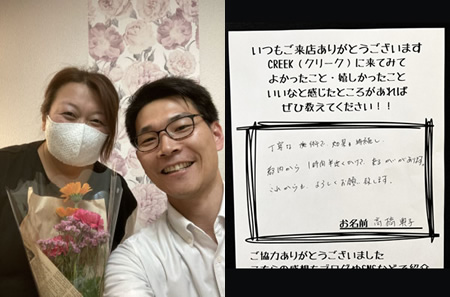 いつもご来店ありがとうございます
CREEK（クリーク）に来てみて
よかったこと・嬉しかったこと
いいなと感じたところがあれば
ぜひ教えてください！！
丁寧な施術で、効果も持続し、
都内から1時間半近くかけて、来るかいがあります。
これからも、よろしくお願い致します。
お名前 高橋
ご協力ありがとうございました